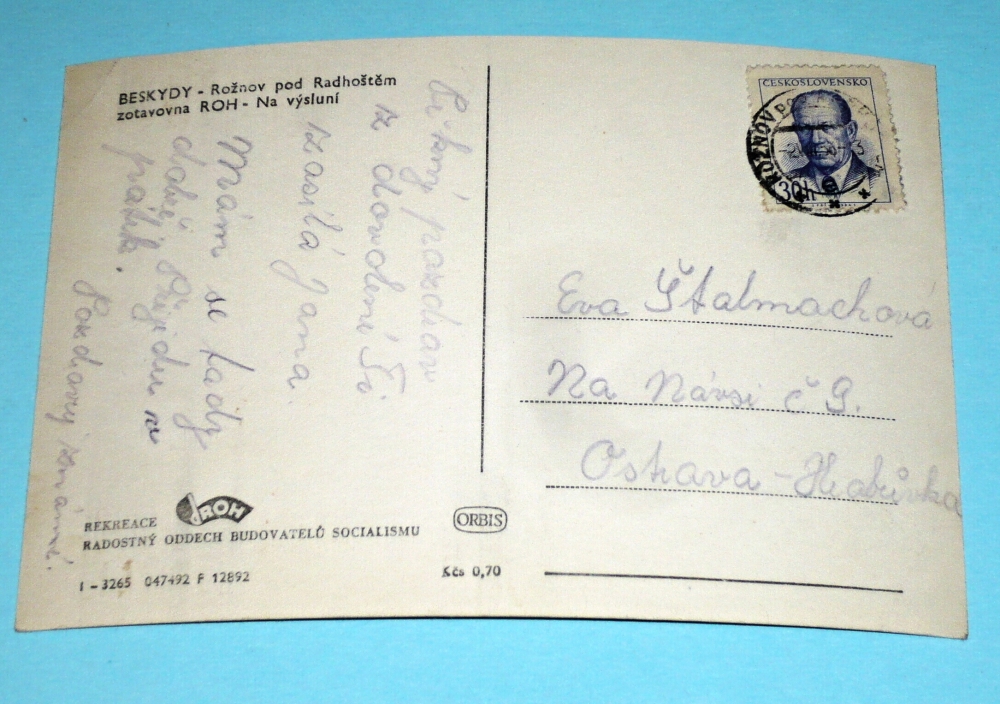 BESKYDY - Rožnov pod Radhoštěm
zotavovna ROH - Na výsluní
pozdrav
z dovolení Ti
zasílá Jana.
Mám se tady
dobře. Přijedu v
pátek.
Pozdravuj známé.
ČESKOSLOVENSKO
ROŽNOV PO
30h
Eva Štalmachová
Na Návsi č 9.
Ostrava-Hrabůvka
REKREACE
ROH
RADOSTNÝ ODDECH BUDOVATELŮ SOCIALISMU
ORBIS
I - 3265 047492 F 12892
Kčs 0,70